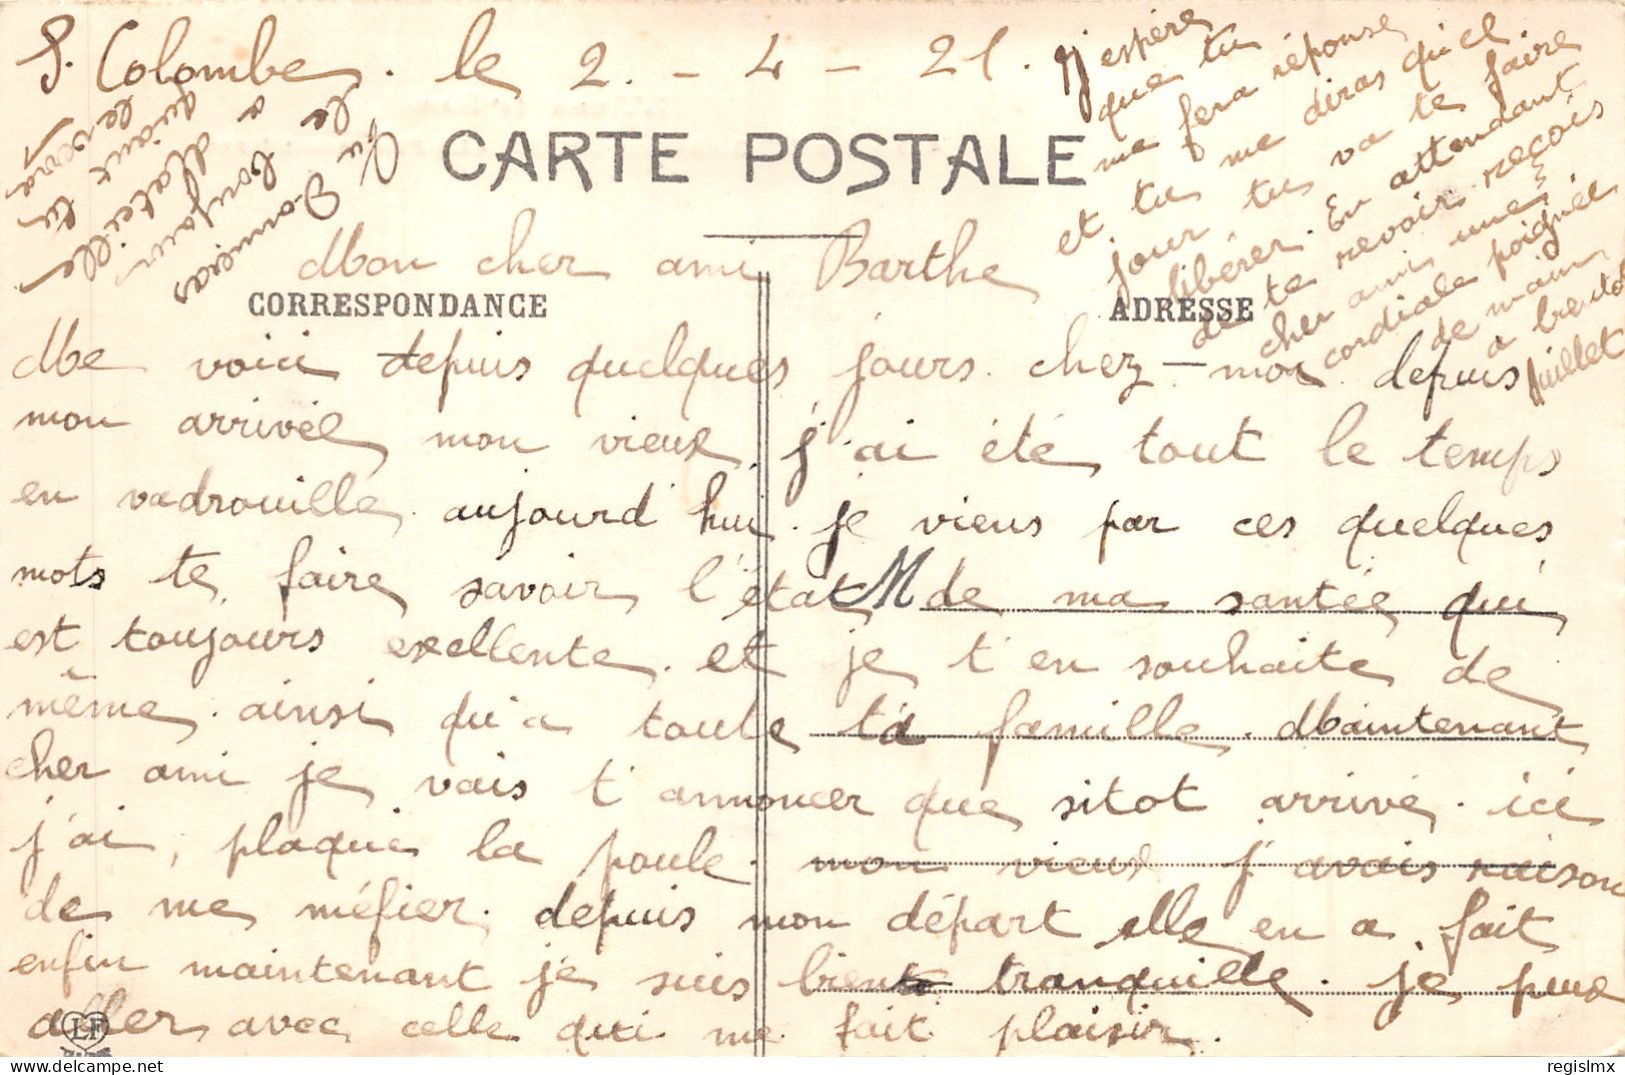 S. Colombe. le 2. - 4 - 21.
CARTE POSTALE
Mon cher ami Barthe
CORRESPONDANCE
ADRESSE
Me voici depuis quelques jours. chez-moi depuis
mon arrivée mon vieux j'ai été tout le temps
en vadrouille aujourd'hui. je viens par ces quelques
mots te faire savoir l'état M de ma santée qui
est toujours excellente. et je t'en souhaite de
même. ainsi qu'a toute ta famille. Maintenant
cher ami je vais t'annoncer que sitot arrivé. ici
j'ai, plaqué la poule. mon vieux j'avais raison
de me méfier. depuis mon départ elle en a fait
enfin maintenant je suis bien tranquille. je peux
aller avec celle qui me fait plaisir.
LF
J'espère
que tu
me fera réponse
et tu me diras quel
jour tu va te faire
libérer. En attendant
de te revoir reçois
cher ami une
cordiale poignée
de main
a bientot
Juillet
le
a bonjour
quant tu
le verra
regislmx